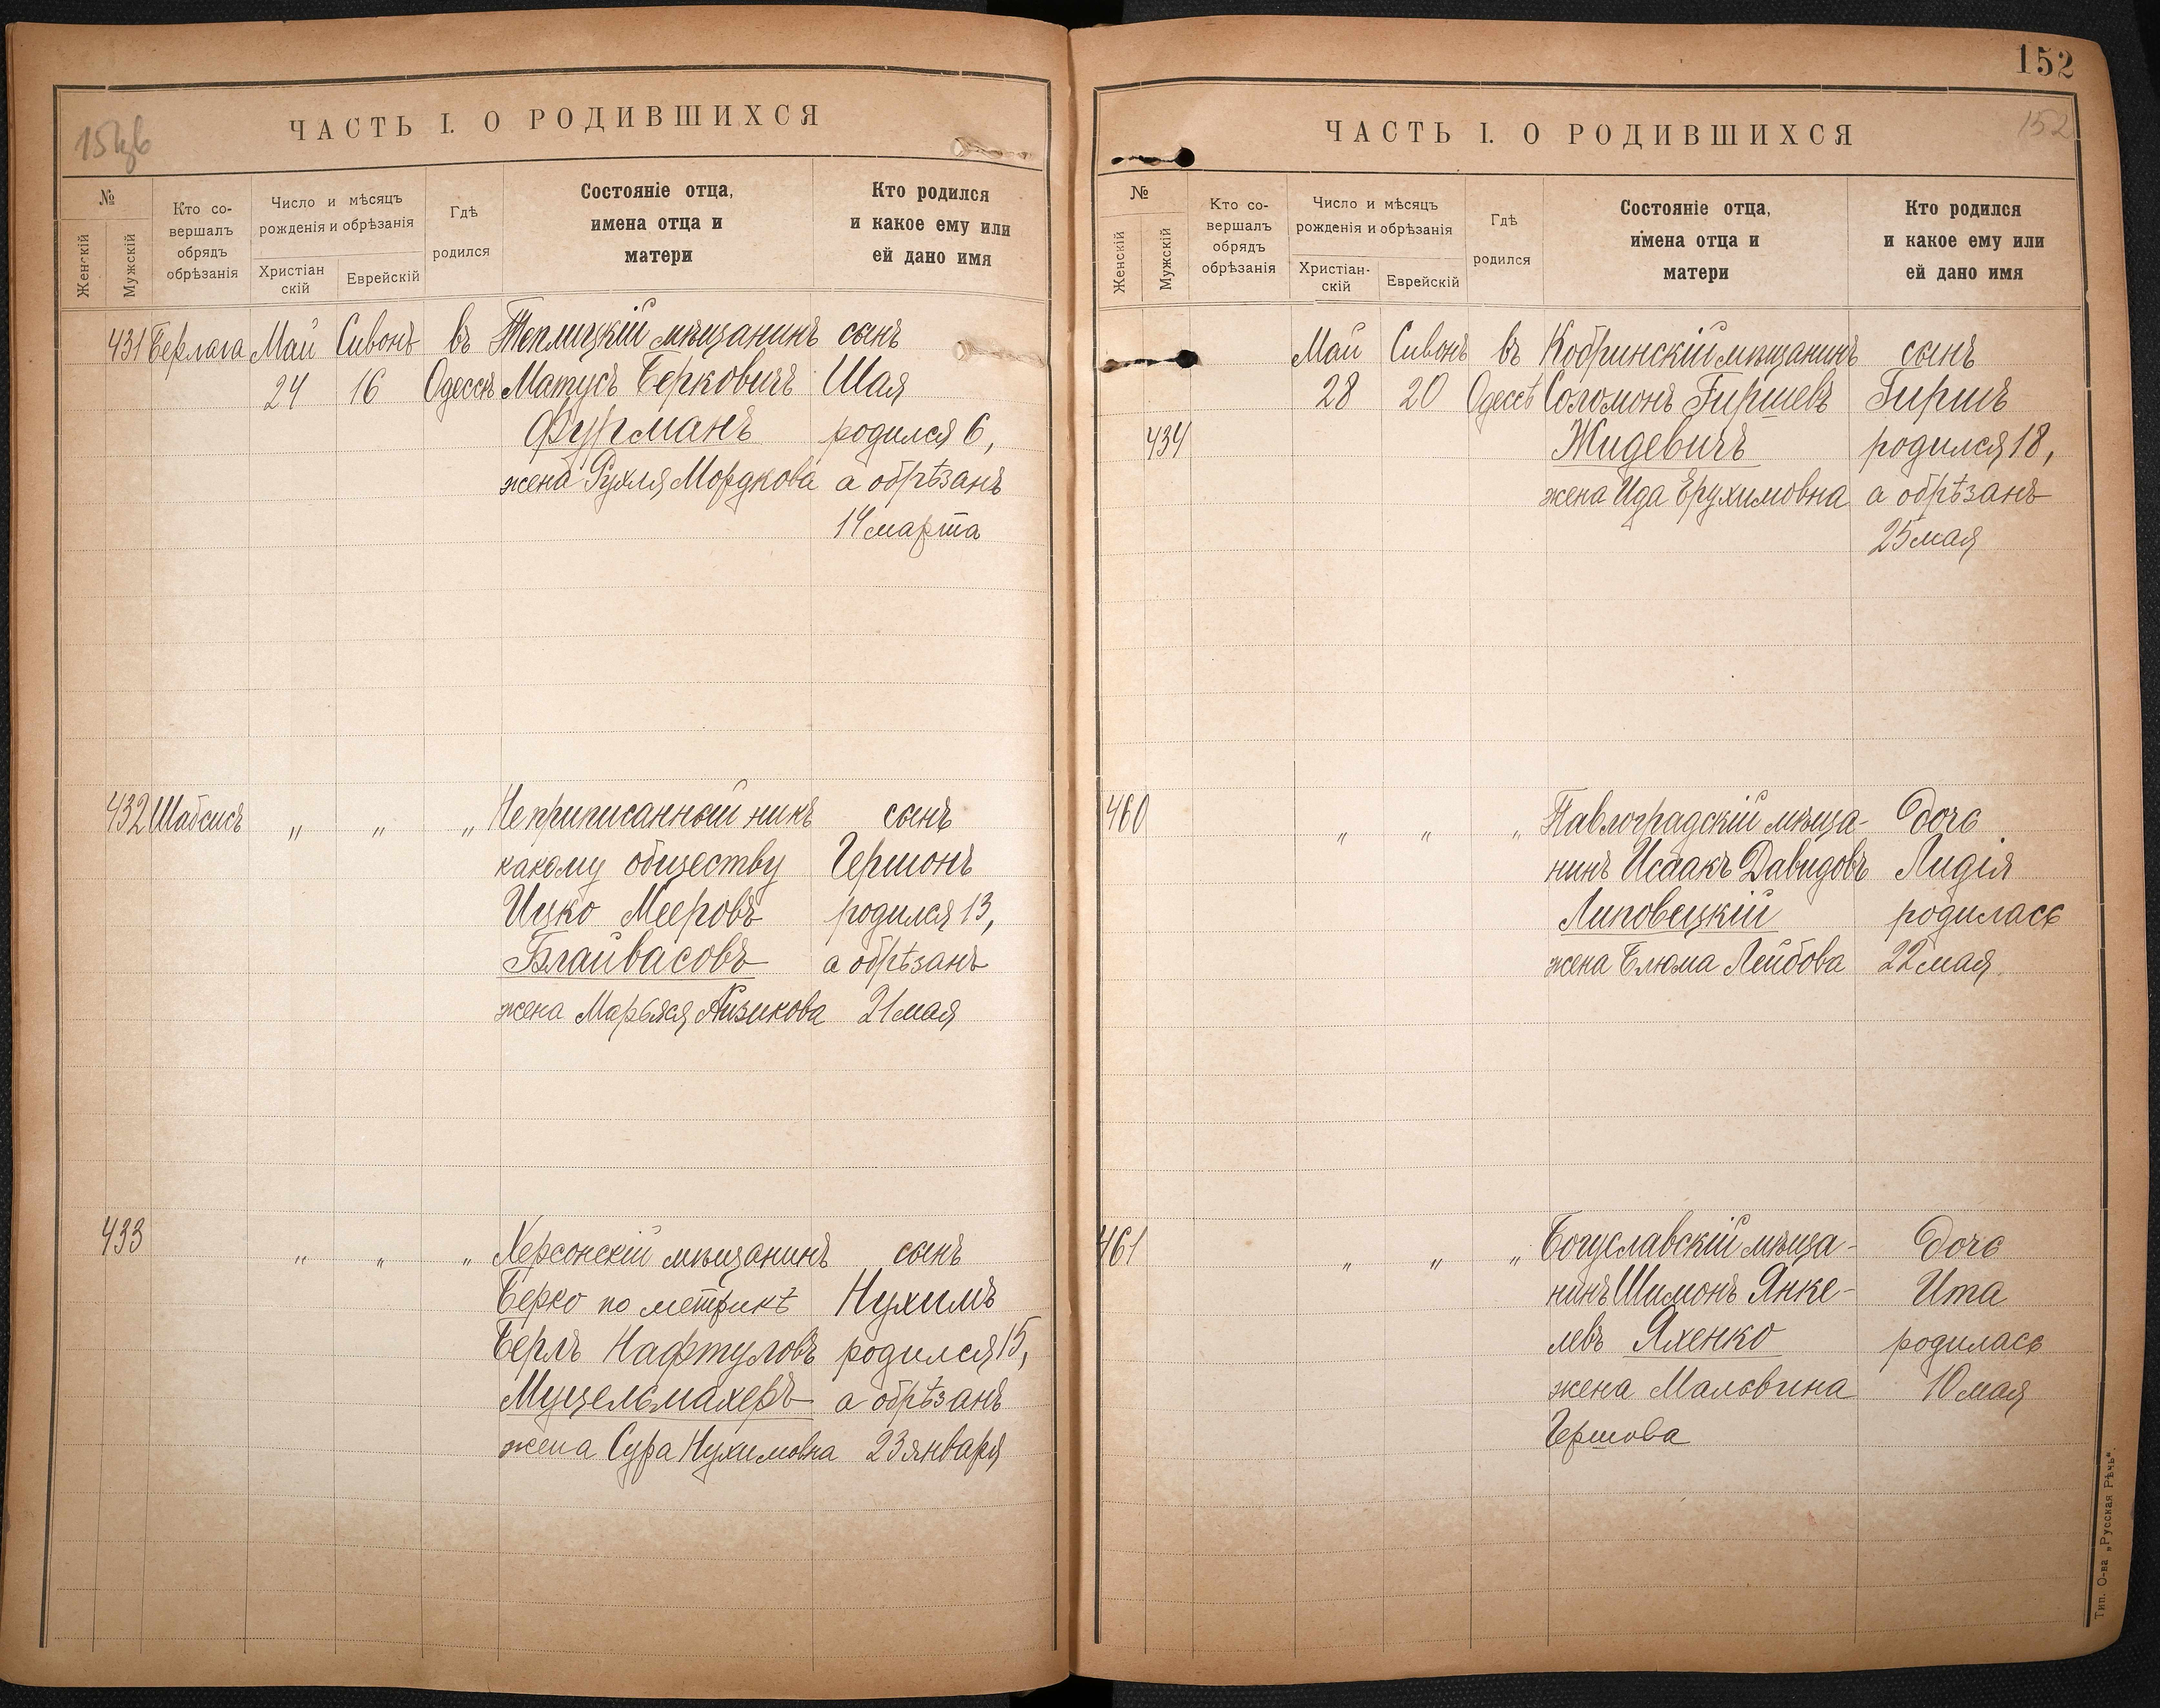 ЧАСТЬ I. О РОДИВШИХСЯ
№
Женскій
Мужскій
Кто со-
вершалъ
обрядъ
обрѣзанія
Число и мѣсяцъ
рожденія и обрѣзанія
Христіан
скій
Еврейскій
Гдѣ
родился
Состояніе отца,
имена отца и
матери
Кто родился
и какое ему или
ей дано имя
431 Берлага Май Сивонъ въ Теплицкій мѣщанинъ сынъ
24 16 Одессѣ Матусъ Берковичъ Шая
Фурманъ родился 6,
жена Рухля Мордкова а обрѣзанъ
14 марта
432 Шабсисъ " " " Неприписанный никъ сынъ
какому обществу Гершонъ
Ицко Мееровъ родился 13,
Блайвасовъ а обрѣзанъ
жена Марьяся Айзикова 21 мая
433 " " " Херсонскій мѣщанинъ сынъ
Берко по метрикѣ Нухимъ
Берлъ Нафтуловъ родился 15,
Мущельмахеръ а обрѣзанъ
жена Сура Нухимовна 23 января
152
152
ЧАСТЬ I. О РОДИВШИХСЯ
№
Женскій
Мужскій
Кто со-
вершалъ
обрядъ
обрѣзанія
Число и мѣсяцъ
рожденія и обрѣзанія
Христіан-
скій
Еврейскій
Гдѣ
родился
Состояніе отца,
имена отца и
матери
Кто родился
и какое ему или
ей дано имя
Май Сивонъ въ Кобринскій мѣщанинъ сынъ
28 20 Одессѣ Соломонъ Гиршевъ Гиршъ
434 Жидевичъ родился 18,
жена Ида Ерухимовна а обрѣзанъ
25 мая
460 " " " Павлоградскій мѣща- дочь
нинъ Исаакъ Давидовъ Лидія
Липовецкій родилась
жена Блюма Лейбова 22 мая
461 " " " Богуславскій мѣща- дочь
нинъ Шимонъ Янке- Ита
левъ Яхенко родилась
жена Мальвина 10 мая
Гершова
Тип. О-ва „Русская Рѣчь".